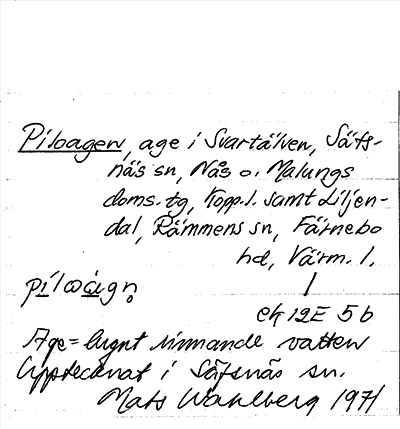 Piloagen, age i Svartälven, Säfs-
näs sn, Nås o. Malungs
doms.tg, Kopp.l. samt Liljen-
dal, Rämmens sn, Färnebo
hd, Värm. l.
pilωágn̥
ek 12E 5b
Age = lugnt rinnande vatten
Upptecknat i Säfsnäs sn.
Mats Wahlberg 1971